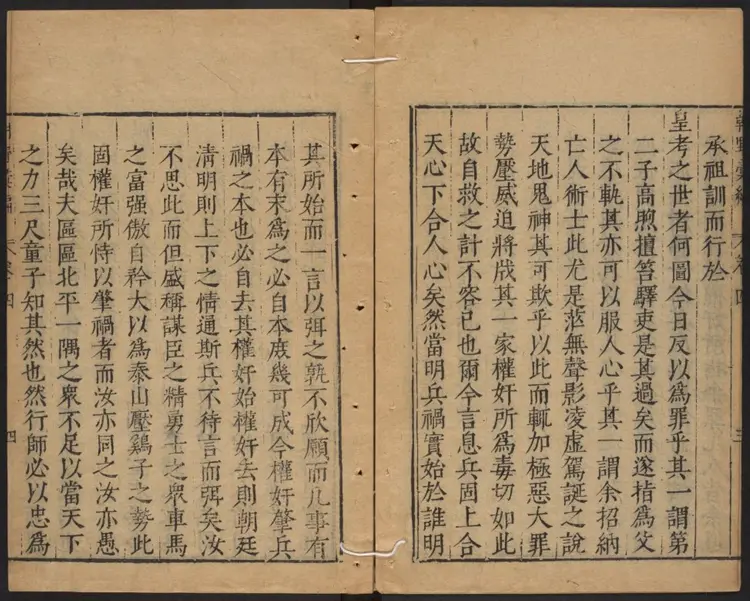 承祖訓而行於
皇考之世者何圖今日反以為罪乎其一謂第
二子高煦擅笞驛吏是其過矣而遂指為父
之不軌其亦可以服人心乎其一謂余招納
亡人術士此尤是茫無聲影凌虛駕誕之說
天地鬼神其可欺乎以此而輒加極惡大罪
勢壓威迫將戕其一家權奸所為毒切如此
故自救之計不容已也爾今言息兵固上合
天心下合人心矣然當明兵禍實始於誰明
其所始而一言以弭之孰不欣願而凡事有
本有末為之必自本庶幾可成今權奸肇兵
禍之本也必自去其權奸始權奸去則朝廷
清明則上下之情通斯兵不待言而弭矣汝
不思此而但盛稱謀臣之精勇士之衆車馬
之富强傲自矜大以為泰山壓鷄子之勢此
固權奸所恃以肇禍者而汝亦同之汝亦愚
矣哉夫區區北平一隅之衆不足以當天下
之力三尺童子知其然也然行師必以忠為
四